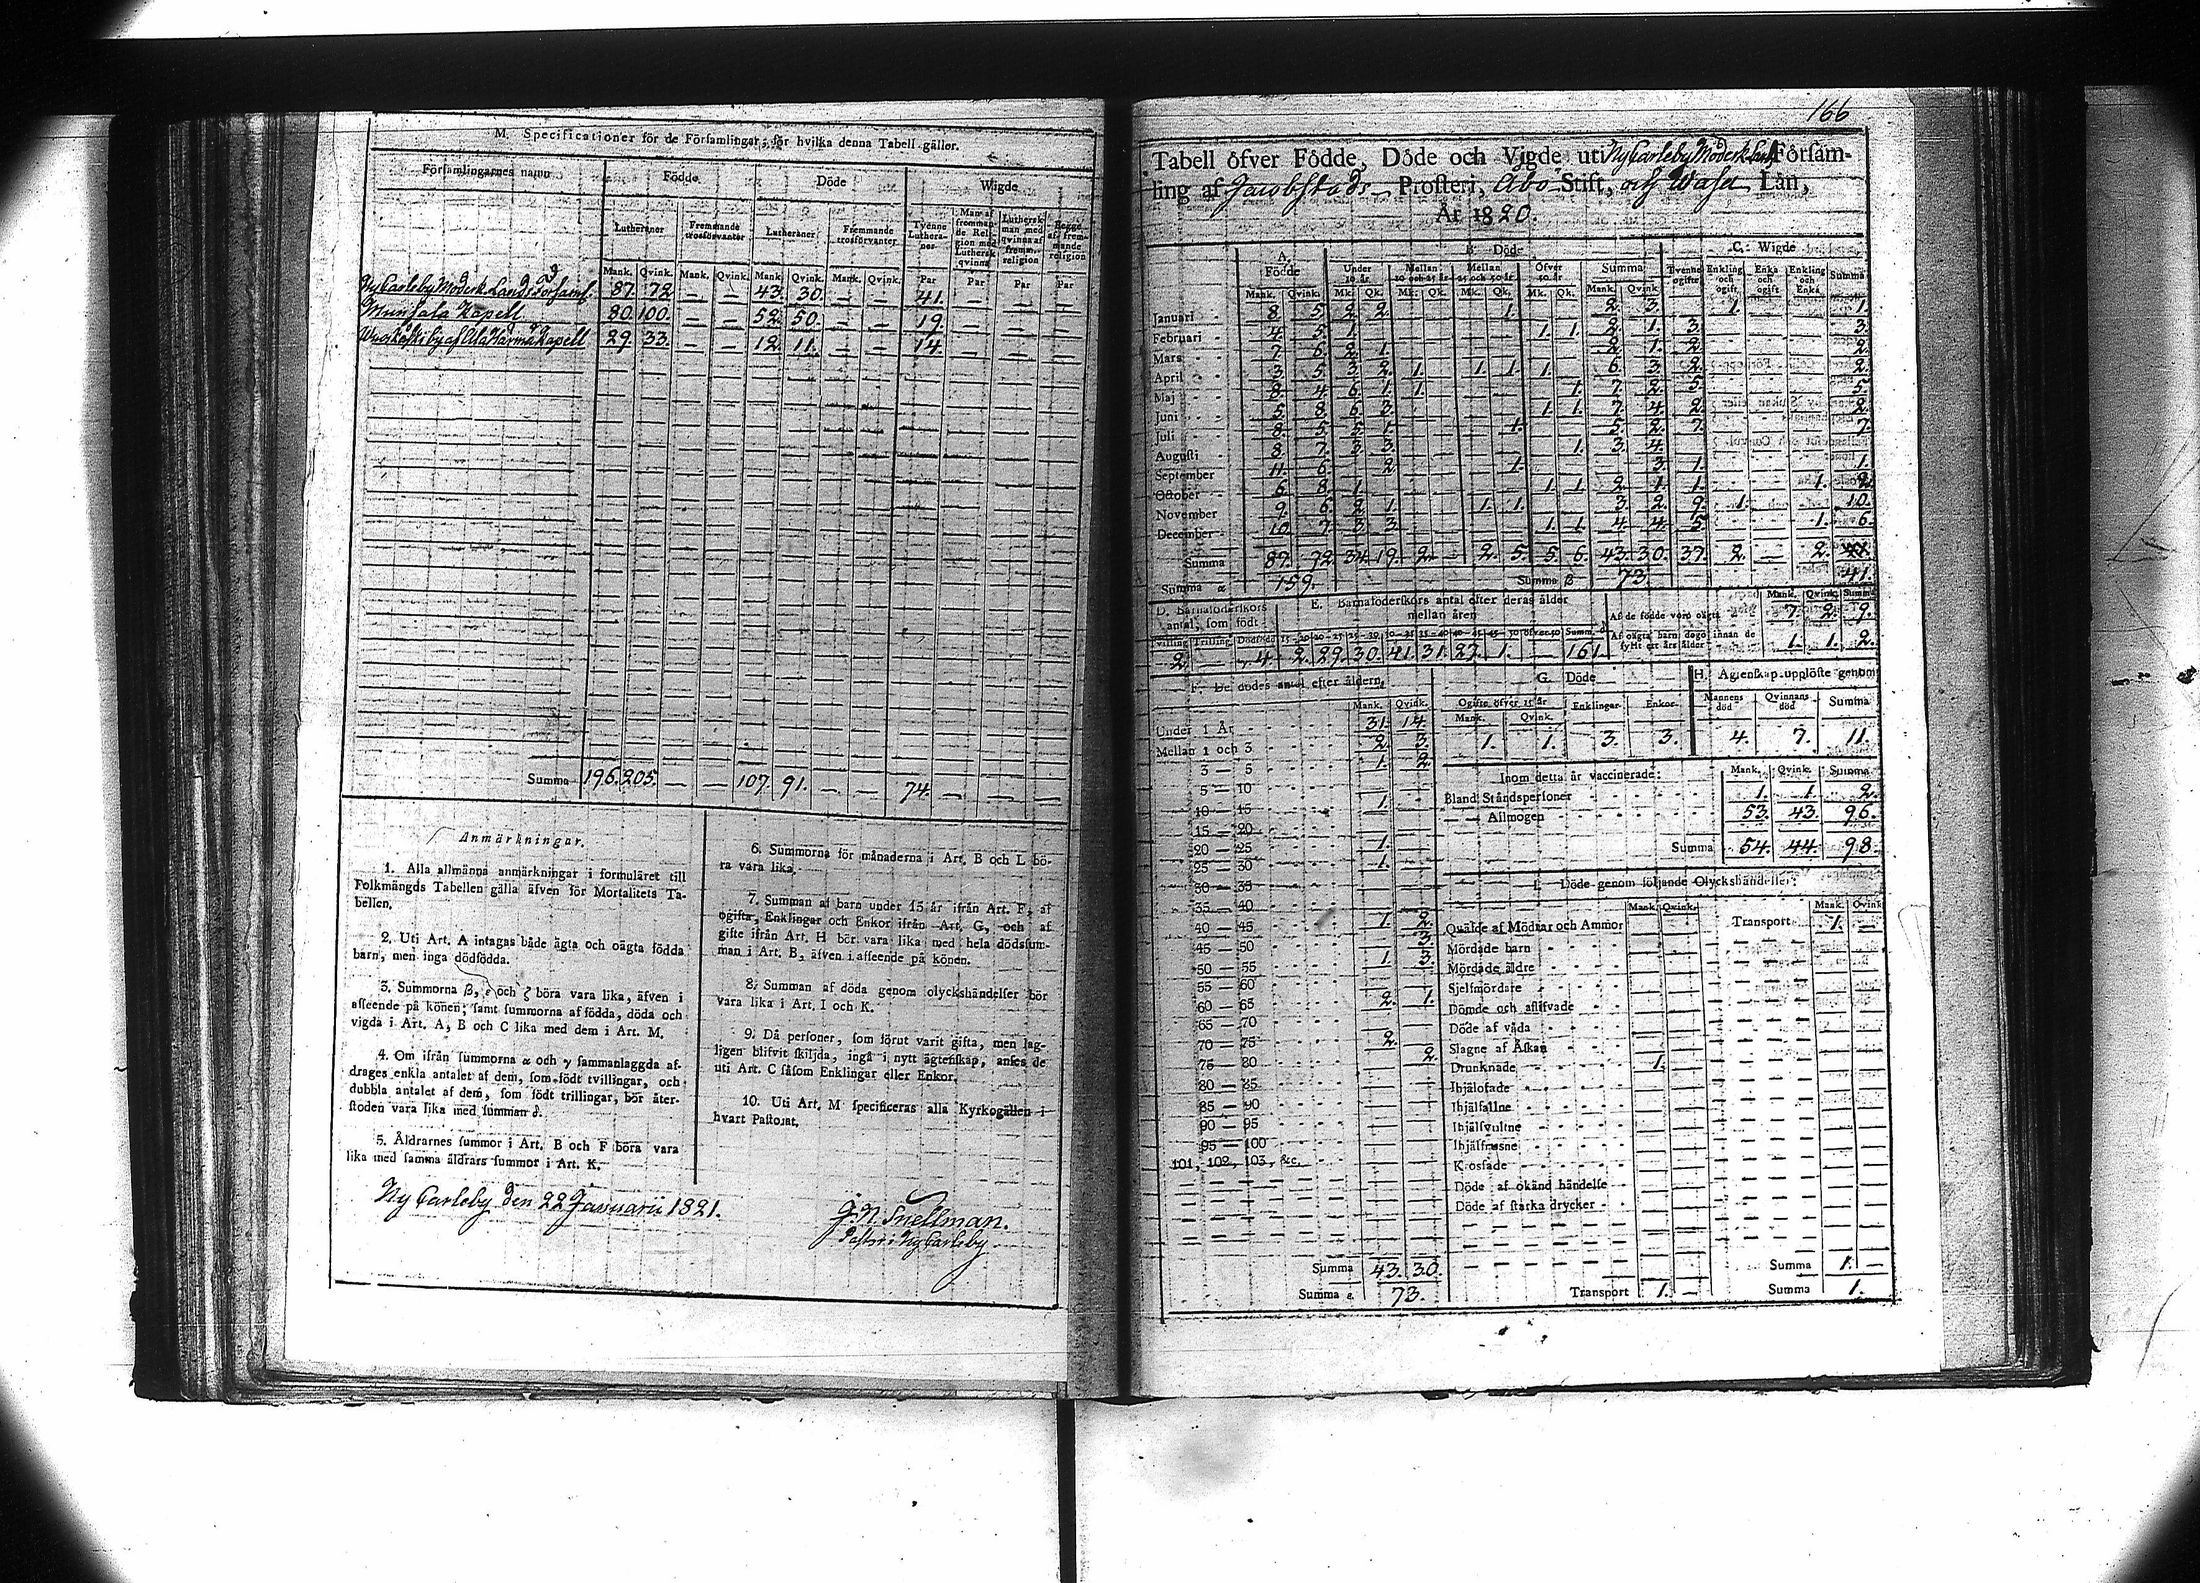 M. Specificationer för de Församlingar, för hvilka denna Tabell gäller.
Församlingarnes namn Födde Döde Wigde
Lutheraner Fremmande trosförvanter Lutheraner Fremmande trosförvanter Tvenne Lutheraner Man af fremmande Religion med Luthersk qvinna Luthersk man med qvinna af fremm. religion Begge af fremmande religion
Mank. Qvink. Mank. Qvink. Mank. Qvink. Mank. Qvink. Par Par Par Par
Ny Carleby Moderk. Lands Församl. 87. 72 — — 43. 30. — — 41. — — —
Munsala Kapell 80. 100. — — 52. 50. — — 19. — — —
by af Ala Härmä Kapell 29. 33. — — 12. 11. — — 14. — — —
Summa 196. 205. — — 107. 91. — — 74. — — —
Anmärkningar.
1. Alla allmänna anmärkningar i formuläret till
Folkmängds Tabellen gälla äfven för Mortalitets Ta-
bellen.
2. Uti Art. A intagas både ägta och oägta födda
barn, men inga dödfödda.
3. Summorna β, ε och ζ böra vara lika, äfven i
afseende på könen; samt summorna af födda, döda och
vigda i Art. A, B och C lika med dem i Art. M.
4. Om ifrån summorna α och γ sammanlaggda af-
drages enkla antalet af dem, som födt tvillingar, och
dubbla antalet af dem, som födt trillingar, bör åter-
stoden vara lika med summan δ.
5. Åldrarnes summor i Art. B och F böra vara
lika med samma åldrars summor i Art. K.
6. Summorna för månaderna i Art. B och L bö-
ra vara lika.
7. Summan af barn under 15 år ifrån Art. F, af
ogifta, Enklingar och Enkor ifrån Art. G, och af
gifte ifrån Art. H bör vara lika med hela dödssum-
man i Art. B, äfven i afseende på könen.
8. Summan af döda genom olyckshändelser bör
vara lika i Art. I och K.
9. Då personer, som förut varit gifta, men lag-
ligen blifvit skiljda, ingå i nytt ägtenskap, anses de
uti Art. C såsom Enklingar eller Enkor.
10. Uti Art. M specificeras alla Kyrkogällen i
hvart Pastorat.
Ny Carleby den 22 Januarii 1821.
J. N. Snellman.
Pastor i Ny Carleby
166
Tabell öfver Födde, Döde och Vigde uti Ny Carleby Moderk. Församling
af Jacobstads Prosteri, Åbo Stift, och Wasa Län,
År 1820.
A. Födde B. Döde C. Wigde
Under 10 år Mellan 10 och 25 år Mellan 25 och 50 år Öfver 50 år Summa Tvenne ogifte Enkling och ogift Enka och ogift Enkling och Enka Summa
Mank. Qvink. Mk. Qk. Mk. Qk. Mk. Qk. Mk. Qk. Mank. Qvink.
Januari 8. 5. 2. 2. 1. 2. 3. 1. 1.
Februari 4. 5. 1. 1. 1. 2. 1. 3. 3.
Mars 7. 6. 2. 1. 2. 1. 2. 2.
April 3. 5. 3. 2. 1. 1. 1. 1. 6. 3. 2. 2.
Maj 8. 4. 6. 1. 1. 1. 7. 2. 5. 5.
Juni 5. 8. 6. 3. 1. 1. 7. 4. 2. 2.
Juli 8. 5. 5. 1. 1. 5. 2. 7. 7.
Augusti 8. 7. 3. 3. 1. 3. 4.
September 11. 6. 2. 1. 3. 1. 1.
October 6. 8. 1. 1. 1. 2. 1. 1. 1. 2.
November 9. 6. 2. 1. 1. 1. 3. 2. 9. 1. 10.
December 10. 7. 3. 3. 1. 1. 4. 4. 5. 1. 6.
Summa 87. 72. 34. 19. 2. - 2. 5. 5. 6. 43. 30. 37. 2. — 2.
Summa α 159. Summa β 73 41.
D. Barnaföderskors antal, som födt
Tvilling Trilling Dödfödda
2. — 4.
E. Barnaföderskors antal efter deras ålder mellan åren
15—20 20—25 25—30 30—35 35—40 40—45 45—50 öfver 50 Summ. δ
2. 29. 30. 41. 31. 27. 1. — 161.
Mank. Qvink. Summa
Af de födde voro oägta 7. 2. 9.
Af oägta barn dogo innan de fyllt ett års ålder 1. 1. 2.
F. De dödes antal efter åldern,
Mank. Qvink.
Under 1 År 31. 14.
Mellan 1 och 3 2. 3.
3 — 5 1. 2.
5 — 10
10 — 15 1.
15 — 20
20 — 25 1.
25 — 30 1.
30 — 35
35 — 40
40 — 45 1. 2.
45 — 50 3.
50 — 55 1. 3.
55 — 60
60 — 65 2. 1.
65 — 70
70 — 75 2.
75 — 80 2.
80 — 85
85 — 90
90 — 95
95 — 100
101, 102, 103, &c.
Summa 43. 30.
Summa ε. 73.
G. Döde
Ogifte öfver 15 år Enklingar Enkor
Mank. Qvink.
1. 1. 3. 3.
H. Ägtenskap upplöste genom
Mannens död Qvinnans död Summa
4. 7. 11.
Inom detta år vaccinerade: Mank. Qvink. Summa
Bland Ståndspersoner 1. 1. 2.
— — Allmogen 53. 43. 96.
Summa 54. 44. 98.
I. Döde genom följande Olyckshändelser:
Mank. Qvink. Mank. Qvink
Quälde af Mödrar och Ammor Transport 1. —
Mördade barn
Mördade äldre
Sjelfmördare
Dömde och aflifvade
Döde af våda
Slagne af Åskan
Drunknade 1.
Ihjälofade
Ihjälfallne
Ihjälsvultne
Ihjälfrusne
K osfade
Döde af okänd händelse
Döde af starka drycker
Summa 1. —
Transport 1. — Summa 1.